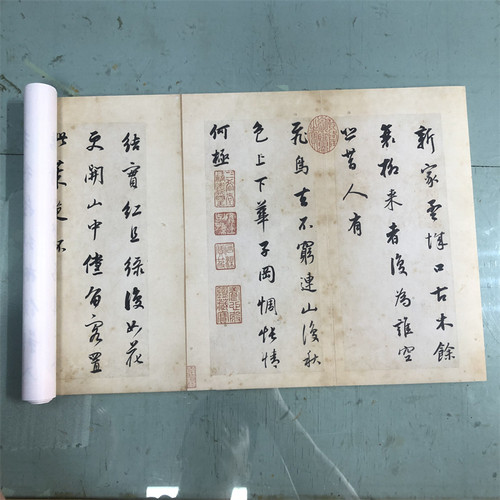 新家孟城口古木餘
衰柳来者復為誰空
悲昔人有
飛鳥去不窮連山復秋
色上下華子岡惆悵情
何極
結實紅且緑復如花
更開山中儻留客置
此茱萸杯